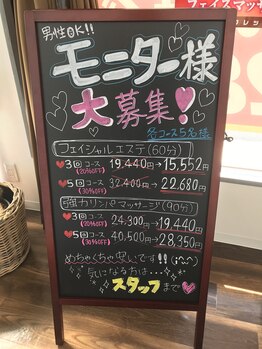 男性OK!!
モニター様
大募集!
各コース5名様
フェイシャルエステ(60分)
♥3回コース 19,440円→15,552円
(20%OFF)
♥5回コース 32,400円→22,680円
(30%OFF)
強カリンパマッサージ(90分)
♥3回コース 24,300円→19,440円
(20%OFF)
♥5回コース 40,500円→28,350円
(30%OFF)
めちゃくちゃ安いです!!
気になる方は・・・
スタッフまで♥
フェイスマッサ